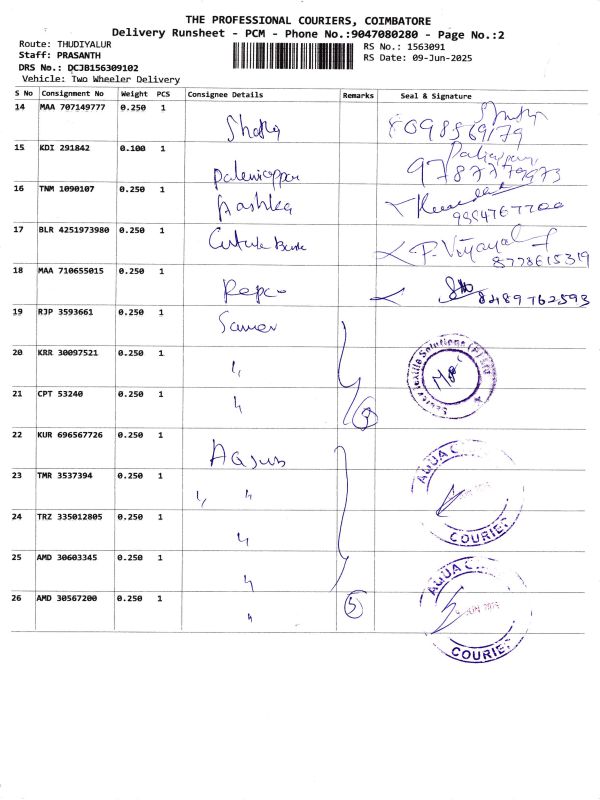 THE PROFESSIONAL COURIERS, COIMBATORE
Delivery Runsheet - PCM - Phone No.:9047080280 - Page No.:2
Route: THUDIYALUR
RS No.: 1563091
Staff: PRASANTH
RS Date: 09-Jun-2025
DRS No.: DCJB156309102
Vehicle: Two Wheeler Delivery
S No Consignment No Weight PCS Consignee Details Remarks Seal & Signature
14 MAA 707149777 0.250 1 8098569179
15 KDI 291842 0.100 1 9787779973
16 TNM 1090107 0.250 1 Aashka
17 BLR 4251973980 0.250 1 P. Vijayal 8778615319
18 MAA 710655015 0.250 1 Repco 8489762593
19 RJP 3593661 0.250 1
20 KRR 30097521 0.250 1 "
21 CPT 53240 0.250 1 "
22 KUR 696567726 0.250 1
23 TMR 3537394 0.250 1 " "
24 TRZ 335012805 0.250 1 "
25 AMD 30603345 0.250 1 "
26 AMD 30567200 0.250 1 " 5
Textile Solutions (P) Ltd
AQUA
COURIER
AQUA
JUN 2025
COURIER